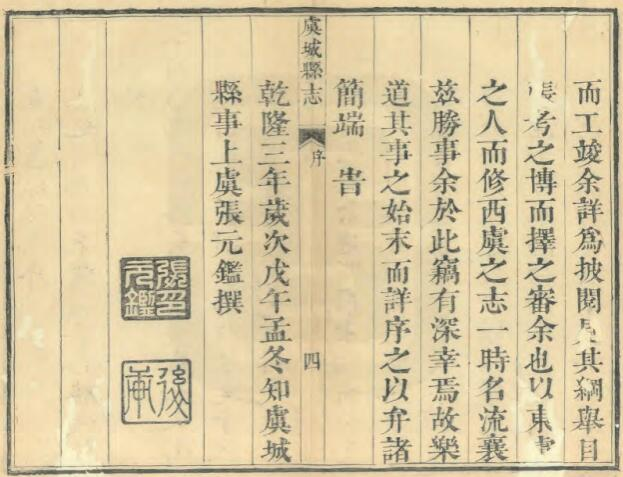 而工竣余詳爲披閱見其綱舉目
張考之博而擇之審余也以東虞
之人而修西虞之志一時名流襄
兹勝事余於此竊有深幸焉故樂
道其事之始末而詳序之以弁諸
簡端 旹
虞城縣志 序 四
乾隆三年歲次戊午孟冬知虞城
縣事上虞張元鑑撰
張元鑑印